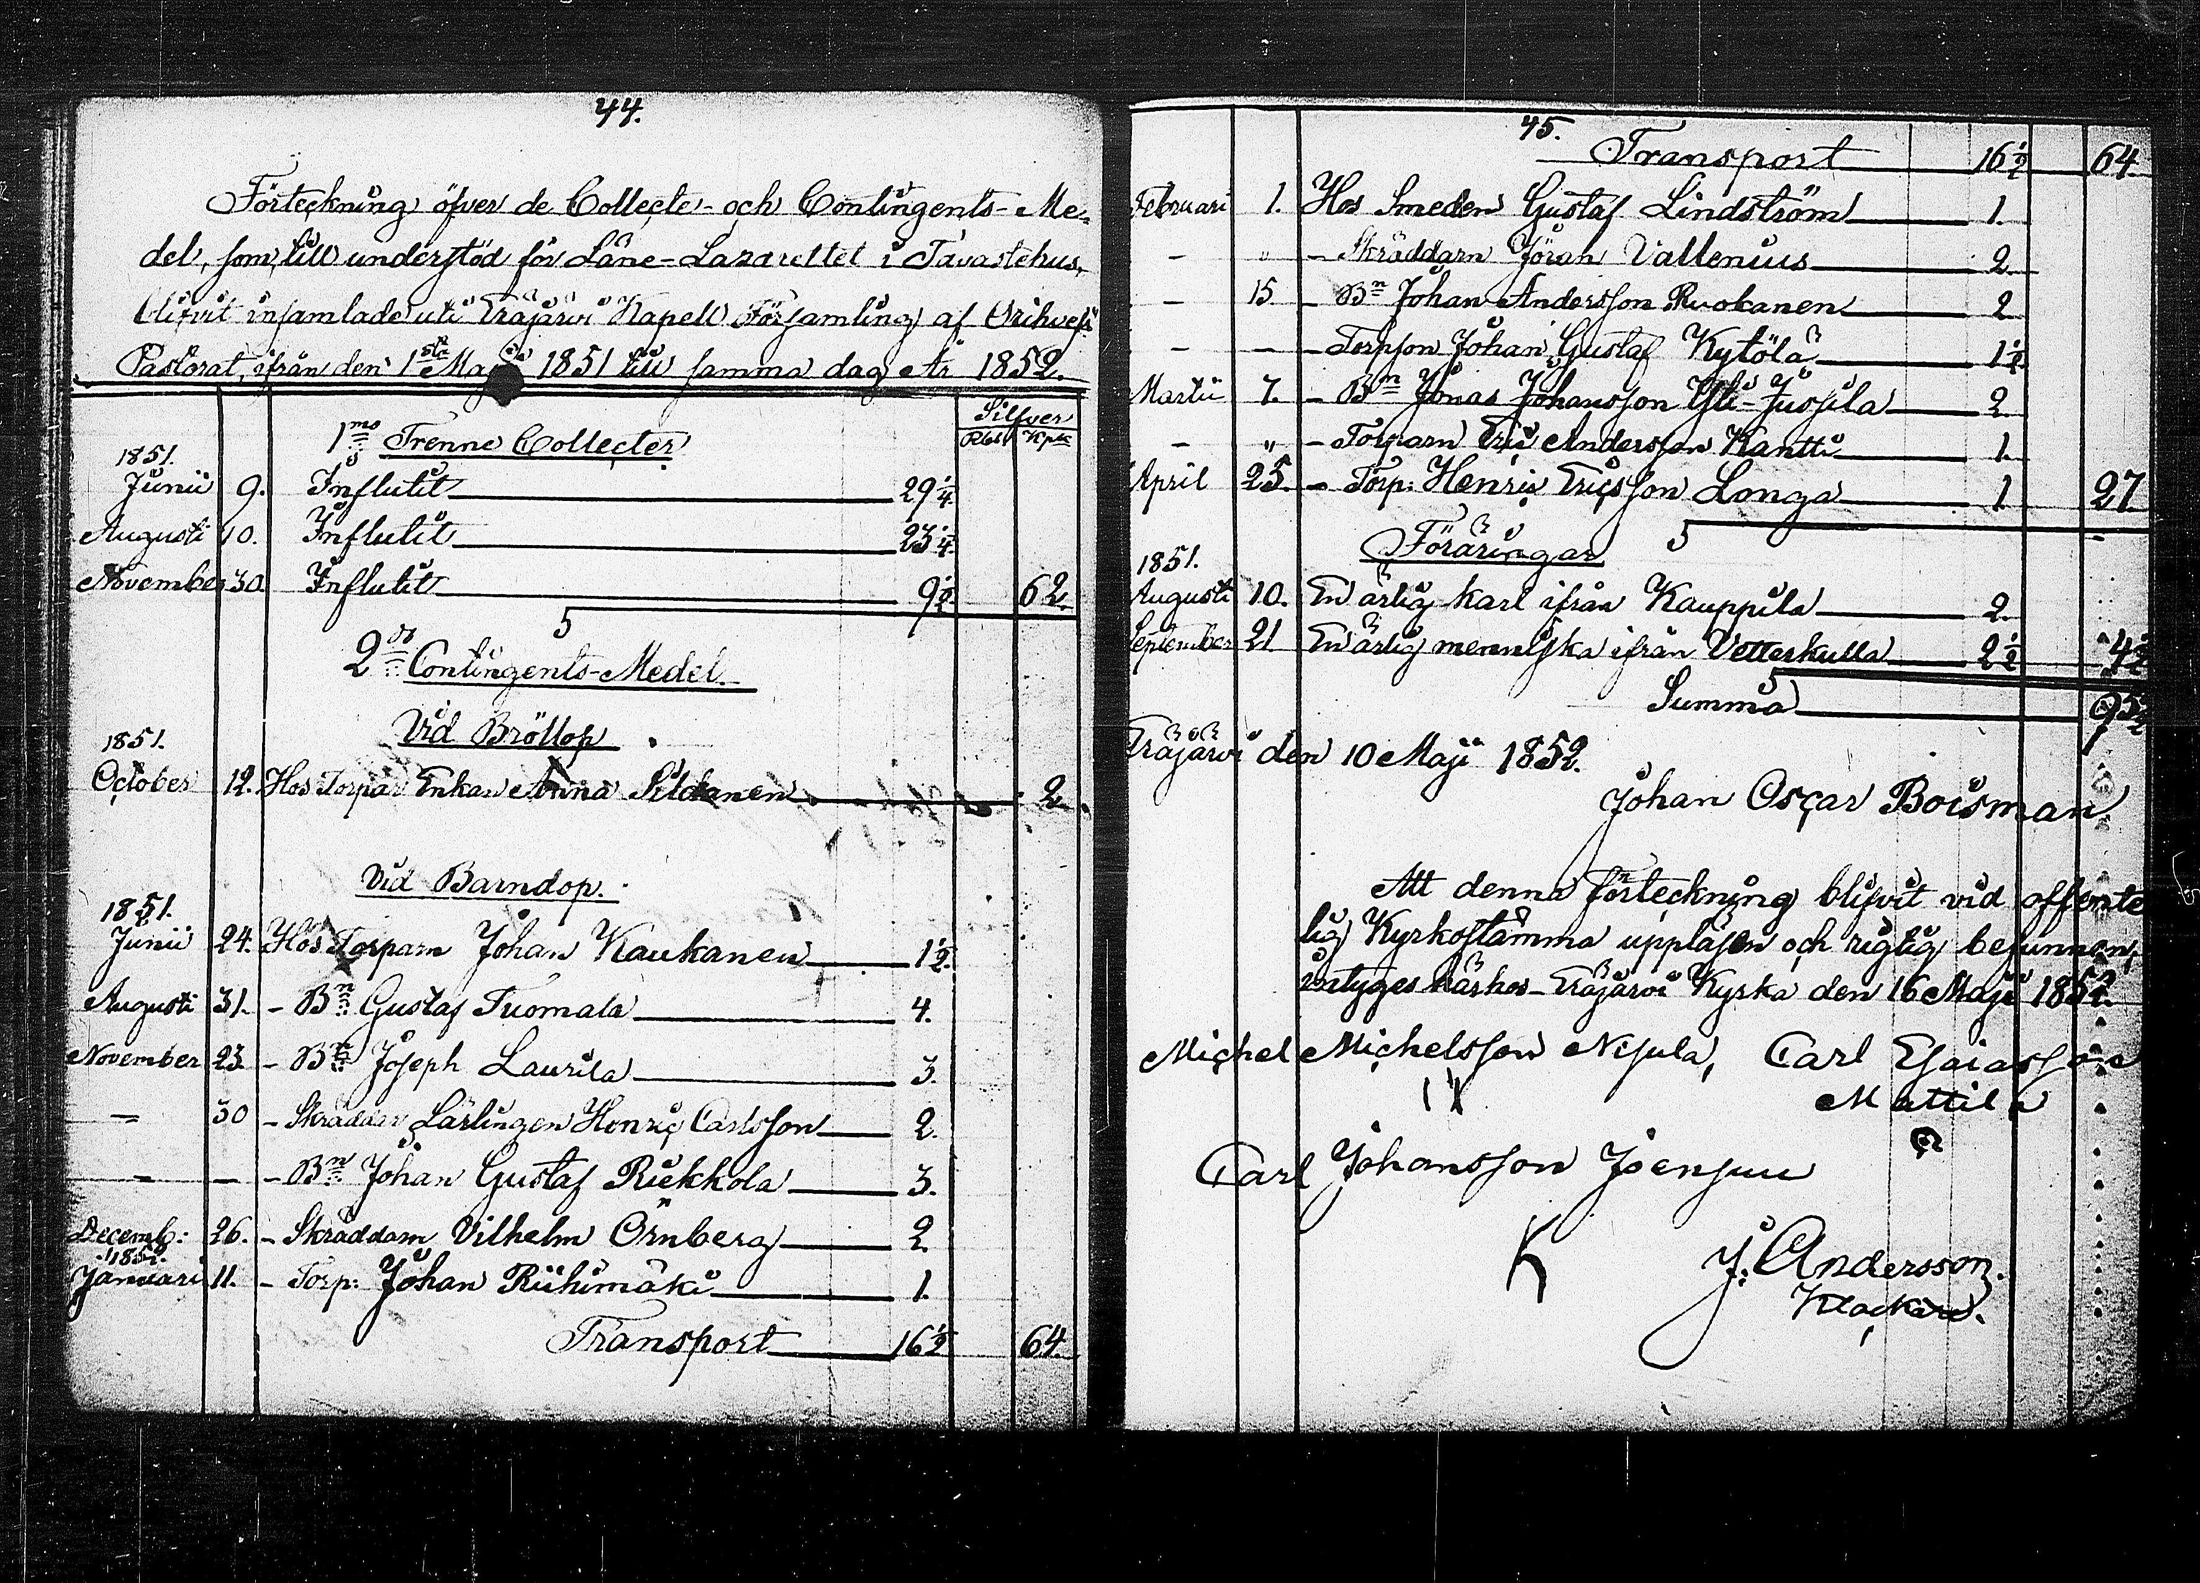 44.
Förteckning öfver de Collecte- och Contingents-Me-
del, som till understöd för Läne-Lazarettet i Tavastehus,
blifvit insamlade uti Eräjärvi Kapell Församling af Orihvesi
Pastorat, ifrån den 1sta Maji 1851 till samma dag År 1852.
Silfver
Rbl. Kpk
1mo Trenne Collecter
1851.
Junii 9. Influtit 29 1/4
Augusti 10. Influtit 23 1/4
November 30. Influtit 9 1/2 62.
2do Contingents-Medel.
Vid Bröllop
1851.
October 12. Hos Torpar Enkan Anna 2.
Vid Barndop.
1851.
Junii 24. Hos Torparn Johan Kaukanen 1 1/2
Augusti 31. - Bn Gustaf Tuomala 4.
November 23 - Bn Joseph Laurila 3.
— 30 - Skräddar Lärlingen Henric Carlsson 2.
— — - Bn Johan Gustaf Riekkola 3.
Decemb: 26. - Skräddarn Vilhelm Örnberg 2
1852.
Januari 11. - Torp: Johan Riihimäki 1.
Transport 16 1/2 64.
45.
Transport 16 1/2 64
Februari 1. Hos Smeden Gustaf Lindström 1.
- " - Skräddarn Jöran Vallenius 2
- 15 - Bn Johan Andersson Ruokanen 2
- — - Torpson Johan Gustaf Kytölä 1 1/2
Martii 7. - Bn Jonas Johansson Yli-Jussila 2
- " - Torparn Eric Andersson Kantti 1.
April 25. - Torp: Henric Ericsson Longa 1 27.
Föräringar
1851.
Augusti 10. En ärlig karl ifrån Kauppila 2.
September 21 En ärlig menniska ifrån Vetterkulla 2 1/2 4 1/2
Summa 95 1/2
Eräjärvi den 10 Maji 1852.
Johan Oscar Boisman
Att denna förteckning blifvit vid offente
lig Kyrkostämma uppläsen och rigtig befunnen,
intyges härhos Eräjärvi Kyrka den 16 Maji 1852.
Michel Michelsson Nisula, Carl Esaiasson
Mattila
Carl Johansson Joensuu
K
J. Andersson.
Klockare.